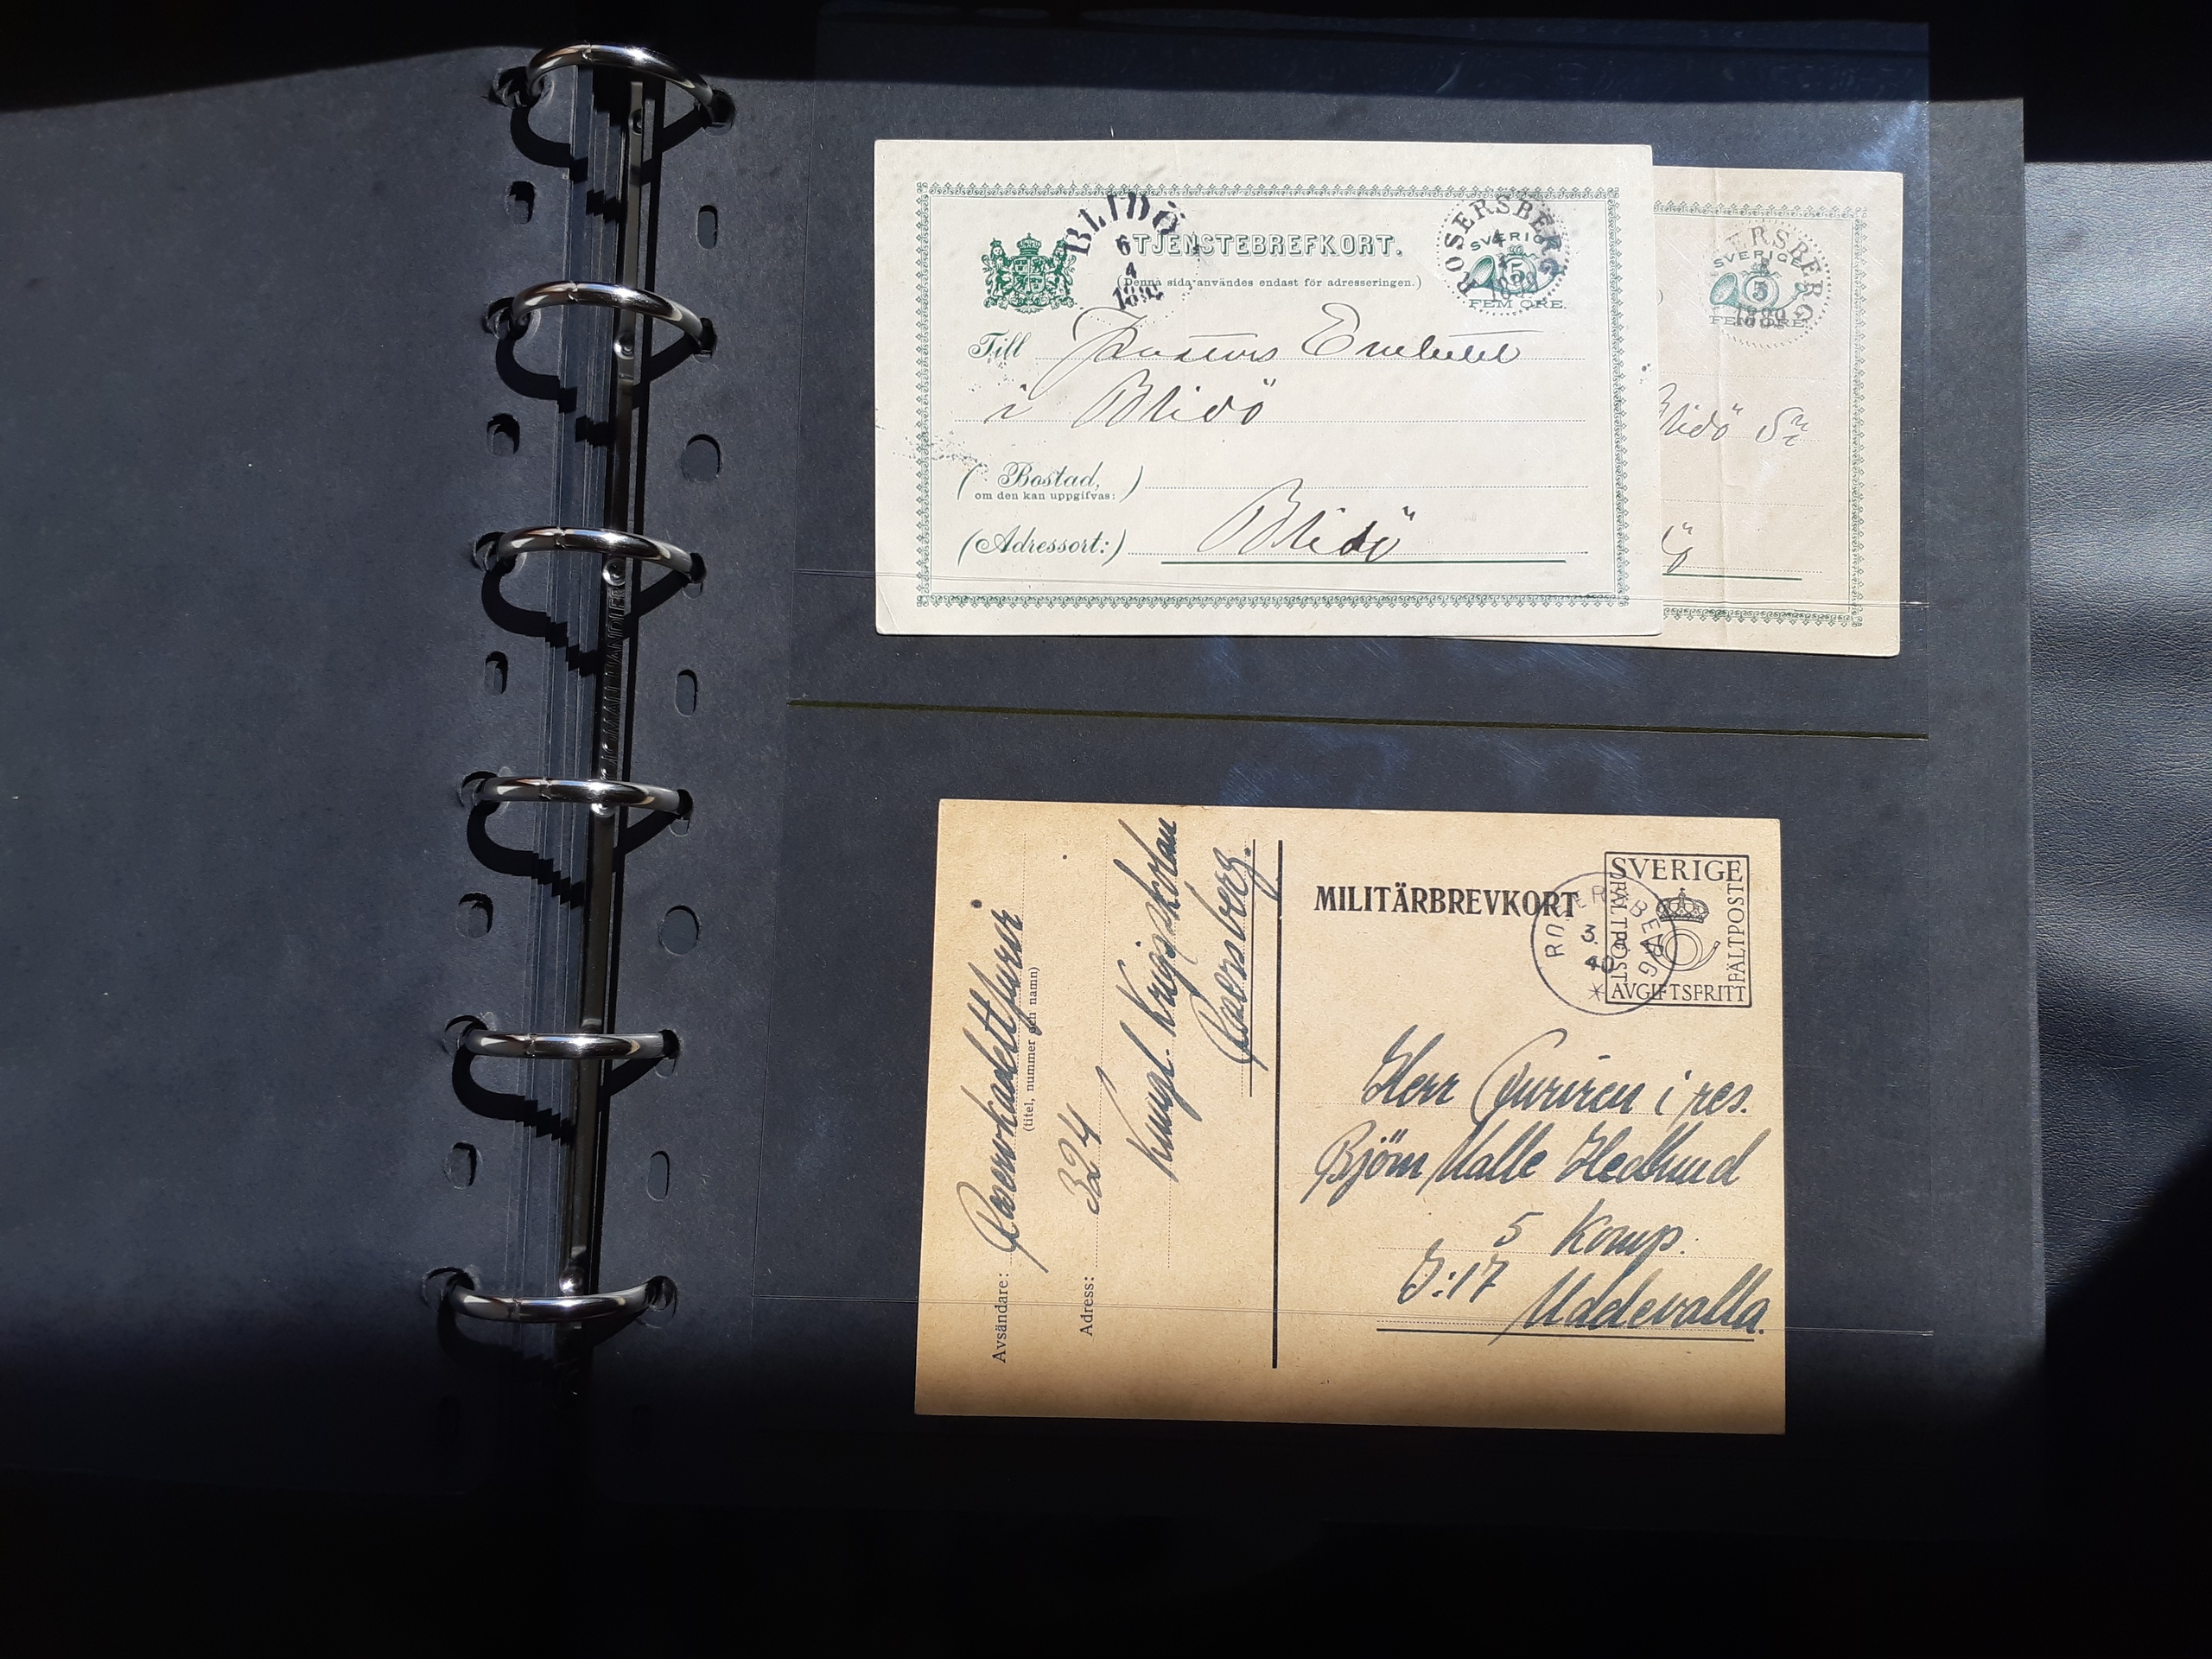 BLIDÖ
6
4
TJENSTEBREFKORT.
(Denna sida användes endast för adresseringen.)
ROSERSBERG
SVERIGE
5
FEM ÖRE.
Till
i Blidö
(Bostad,)
om den kan uppgifvas:
Blidö
(Adressort:)
ERSBERG
SVERIGE
5
1889
Blidö
MILITÄRBREVKORT
SVERIGE
FÄLTPOST
FÄLTPOST
AVGIFTSFRITT
ROSERSBERG
3
40
Herr Furiren i res.
Björn Halle Hedlund
5 Komp.
I:17
Uddevalla.
Avsändare: Reservkadettfurir
(titel, nummer och namn)
Adress: 324
Kungl. Krigsskolan
Rosersberg.